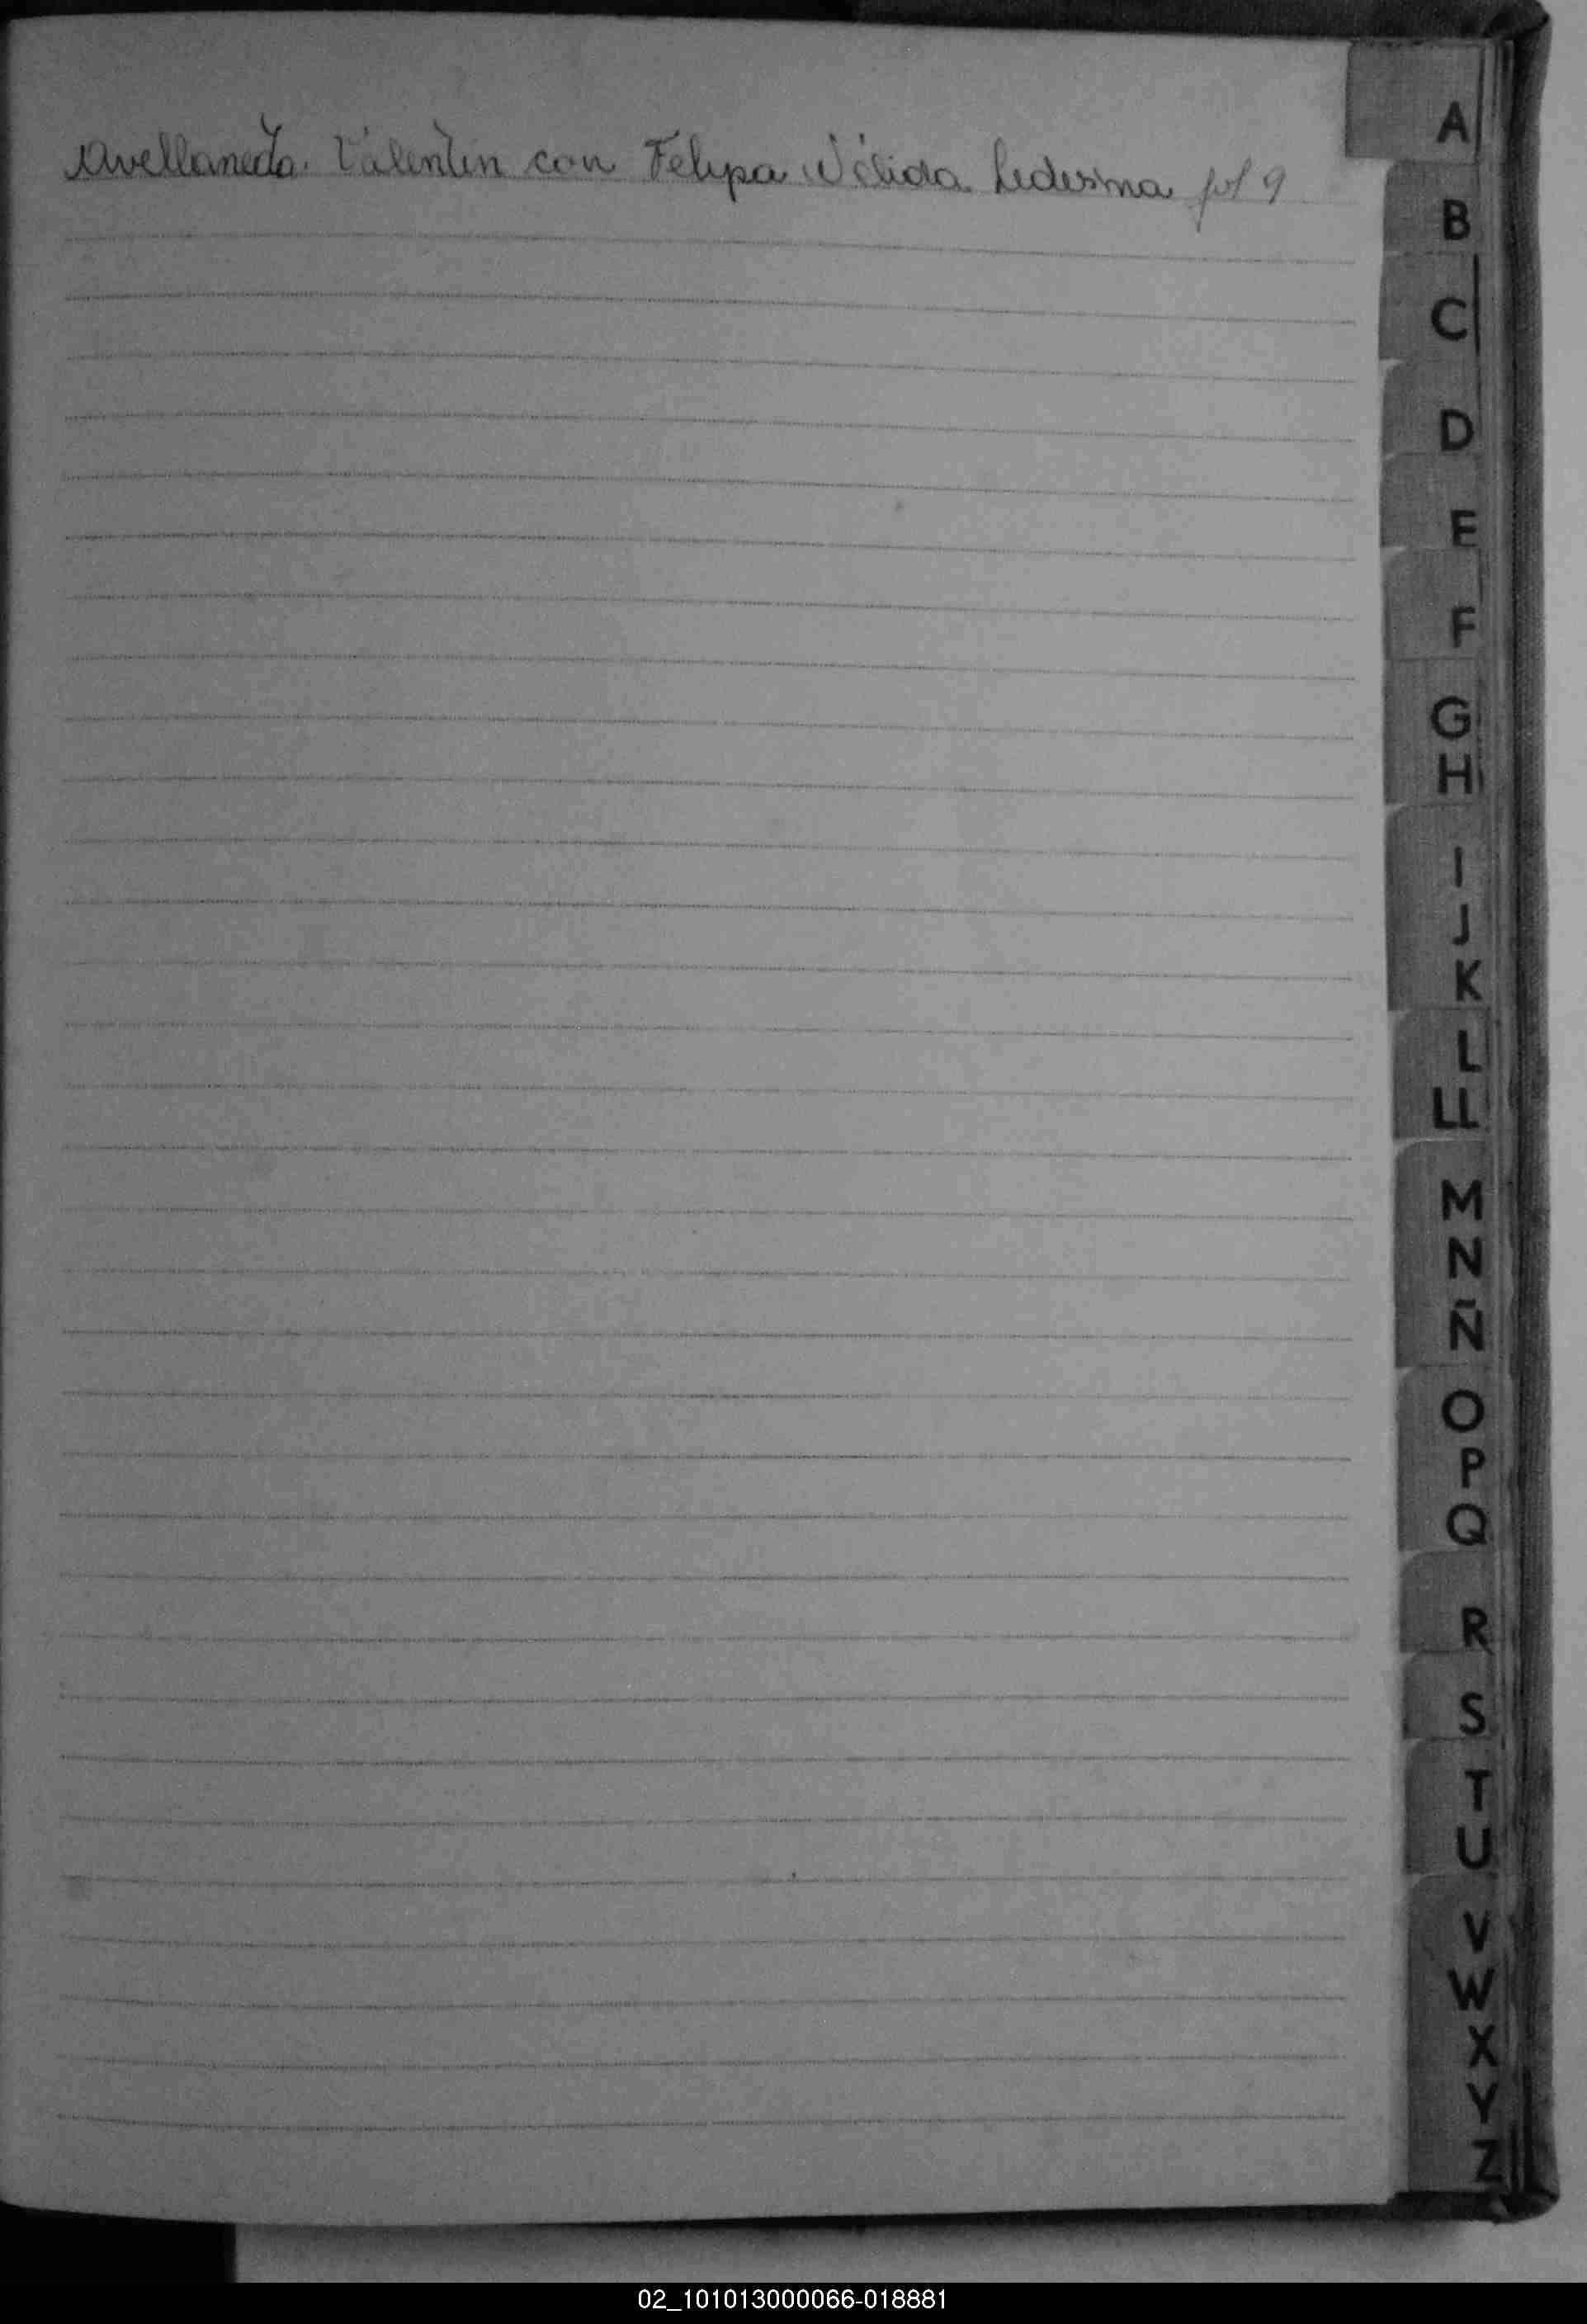 Avellaneda Valentin con Felipa Nélida Ledesma fol 9
A
B
C
D
E
F
G
H
I
J
K
L
LL
M
N
Ñ
O
P
Q
R
S
T
U
V
W
X
Y
Z
02_101013000066-018881